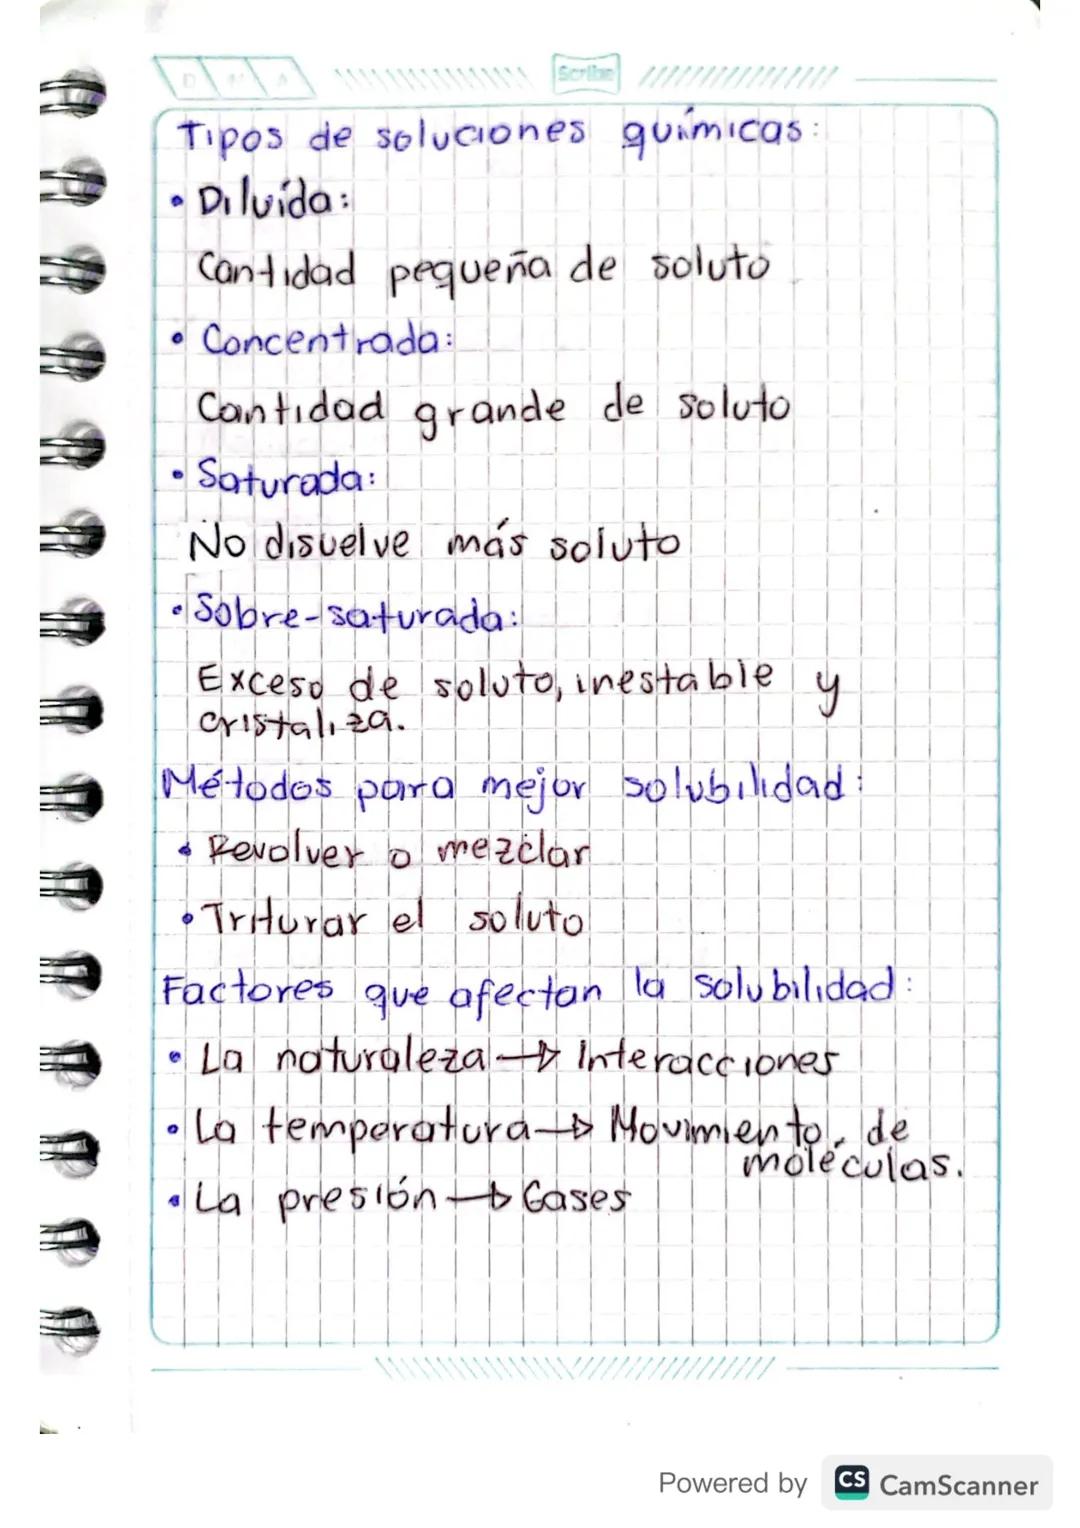 D M A
Scribe
Tipos de soluciones químicas:
• Diluída:
Cantidad pequeña de soluto
• Concentrada:
Cantidad grande de soluto
• Saturada:
No disuelve más soluto
• Sobre-saturada:
Exceso de soluto, inestable y
cristaliza.
Métodos para mejor solubilidad:
• Revolver o mezclar
• Triturar el soluto
Factores que afectan la solubilidad:
• La naturaleza → Interacciones
• La temperatura → Movimiento de
moléculas.
• La presión → Gases
Powered by CS CamScanner